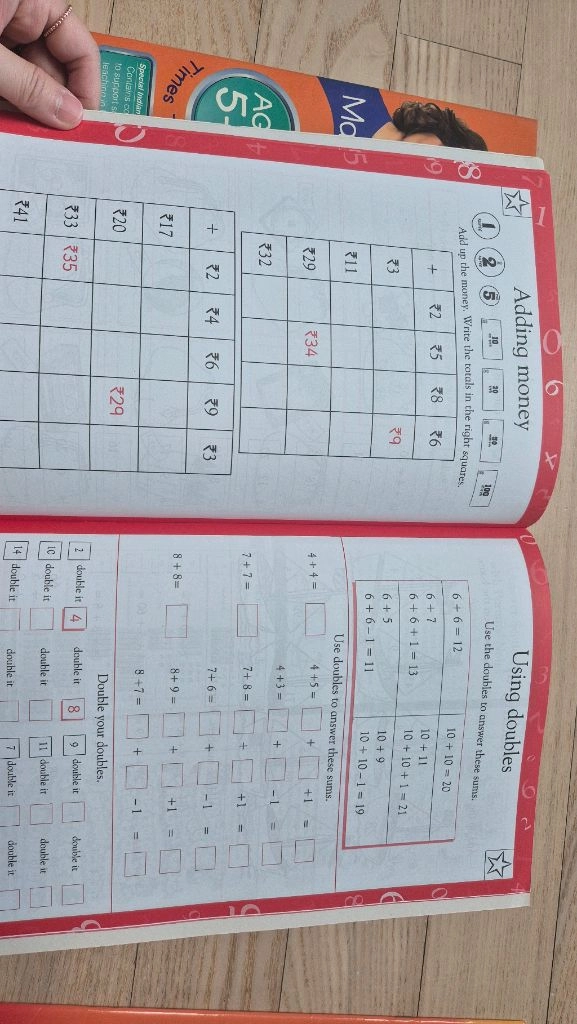 Special Indian
Contains co
to support s
teaching in
Times
AG
5-
Ma
Adding money
1
2
5
10
20
50
100
Add up the money. Write the totals in the right squares.
+ ₹2 ₹5 ₹8 ₹6
₹3 ₹9
₹11
₹29 ₹34
₹32
+ ₹2 ₹4 ₹6 ₹9 ₹3
₹17
₹20 ₹29
₹33 ₹35
₹41
Using doubles
Use the doubles to answer these sums.
6 + 6 = 12 10 + 10 = 20
6 + 7 10 + 11
6 + 6 + 1 = 13 10 + 10 + 1 = 21
6 + 5 10 + 9
6 + 6 – 1 = 11 10 + 10 – 1 = 19
Use doubles to answer these sums.
4 + 4 = 4 + 5 = + +1 =
4 + 3 = + –1 =
7 + 7 = 7 + 8 = + +1 =
7 + 6 = + –1 =
8 + 8= 8 + 9 = + +1 =
8 + 7 = + –1 =
Double your doubles.
2 double it 4 double it 8 9 double it double it
10 double it double it 11 double it double it
14 double it double it 7 double it double it